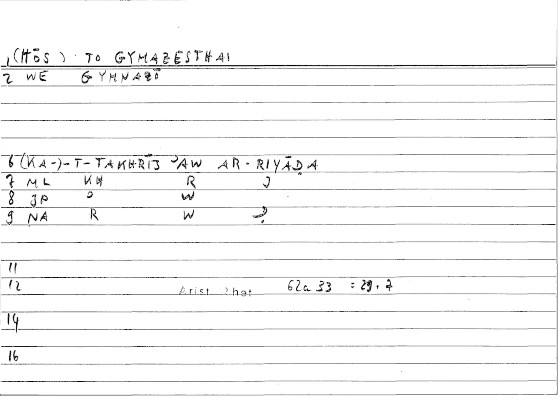 1 (HŌS) TO GYMAZESTHAI
2 WE GYMNAZŌ
6 (KA-)-T-TAKHRĪJ ʾAW AR-RIYĀḌA
7 ML KH R J
8 JP ʾ W
9 NA R W Ḍ
11
12 Arist Rhet 62a 33 = 29,7
14
16